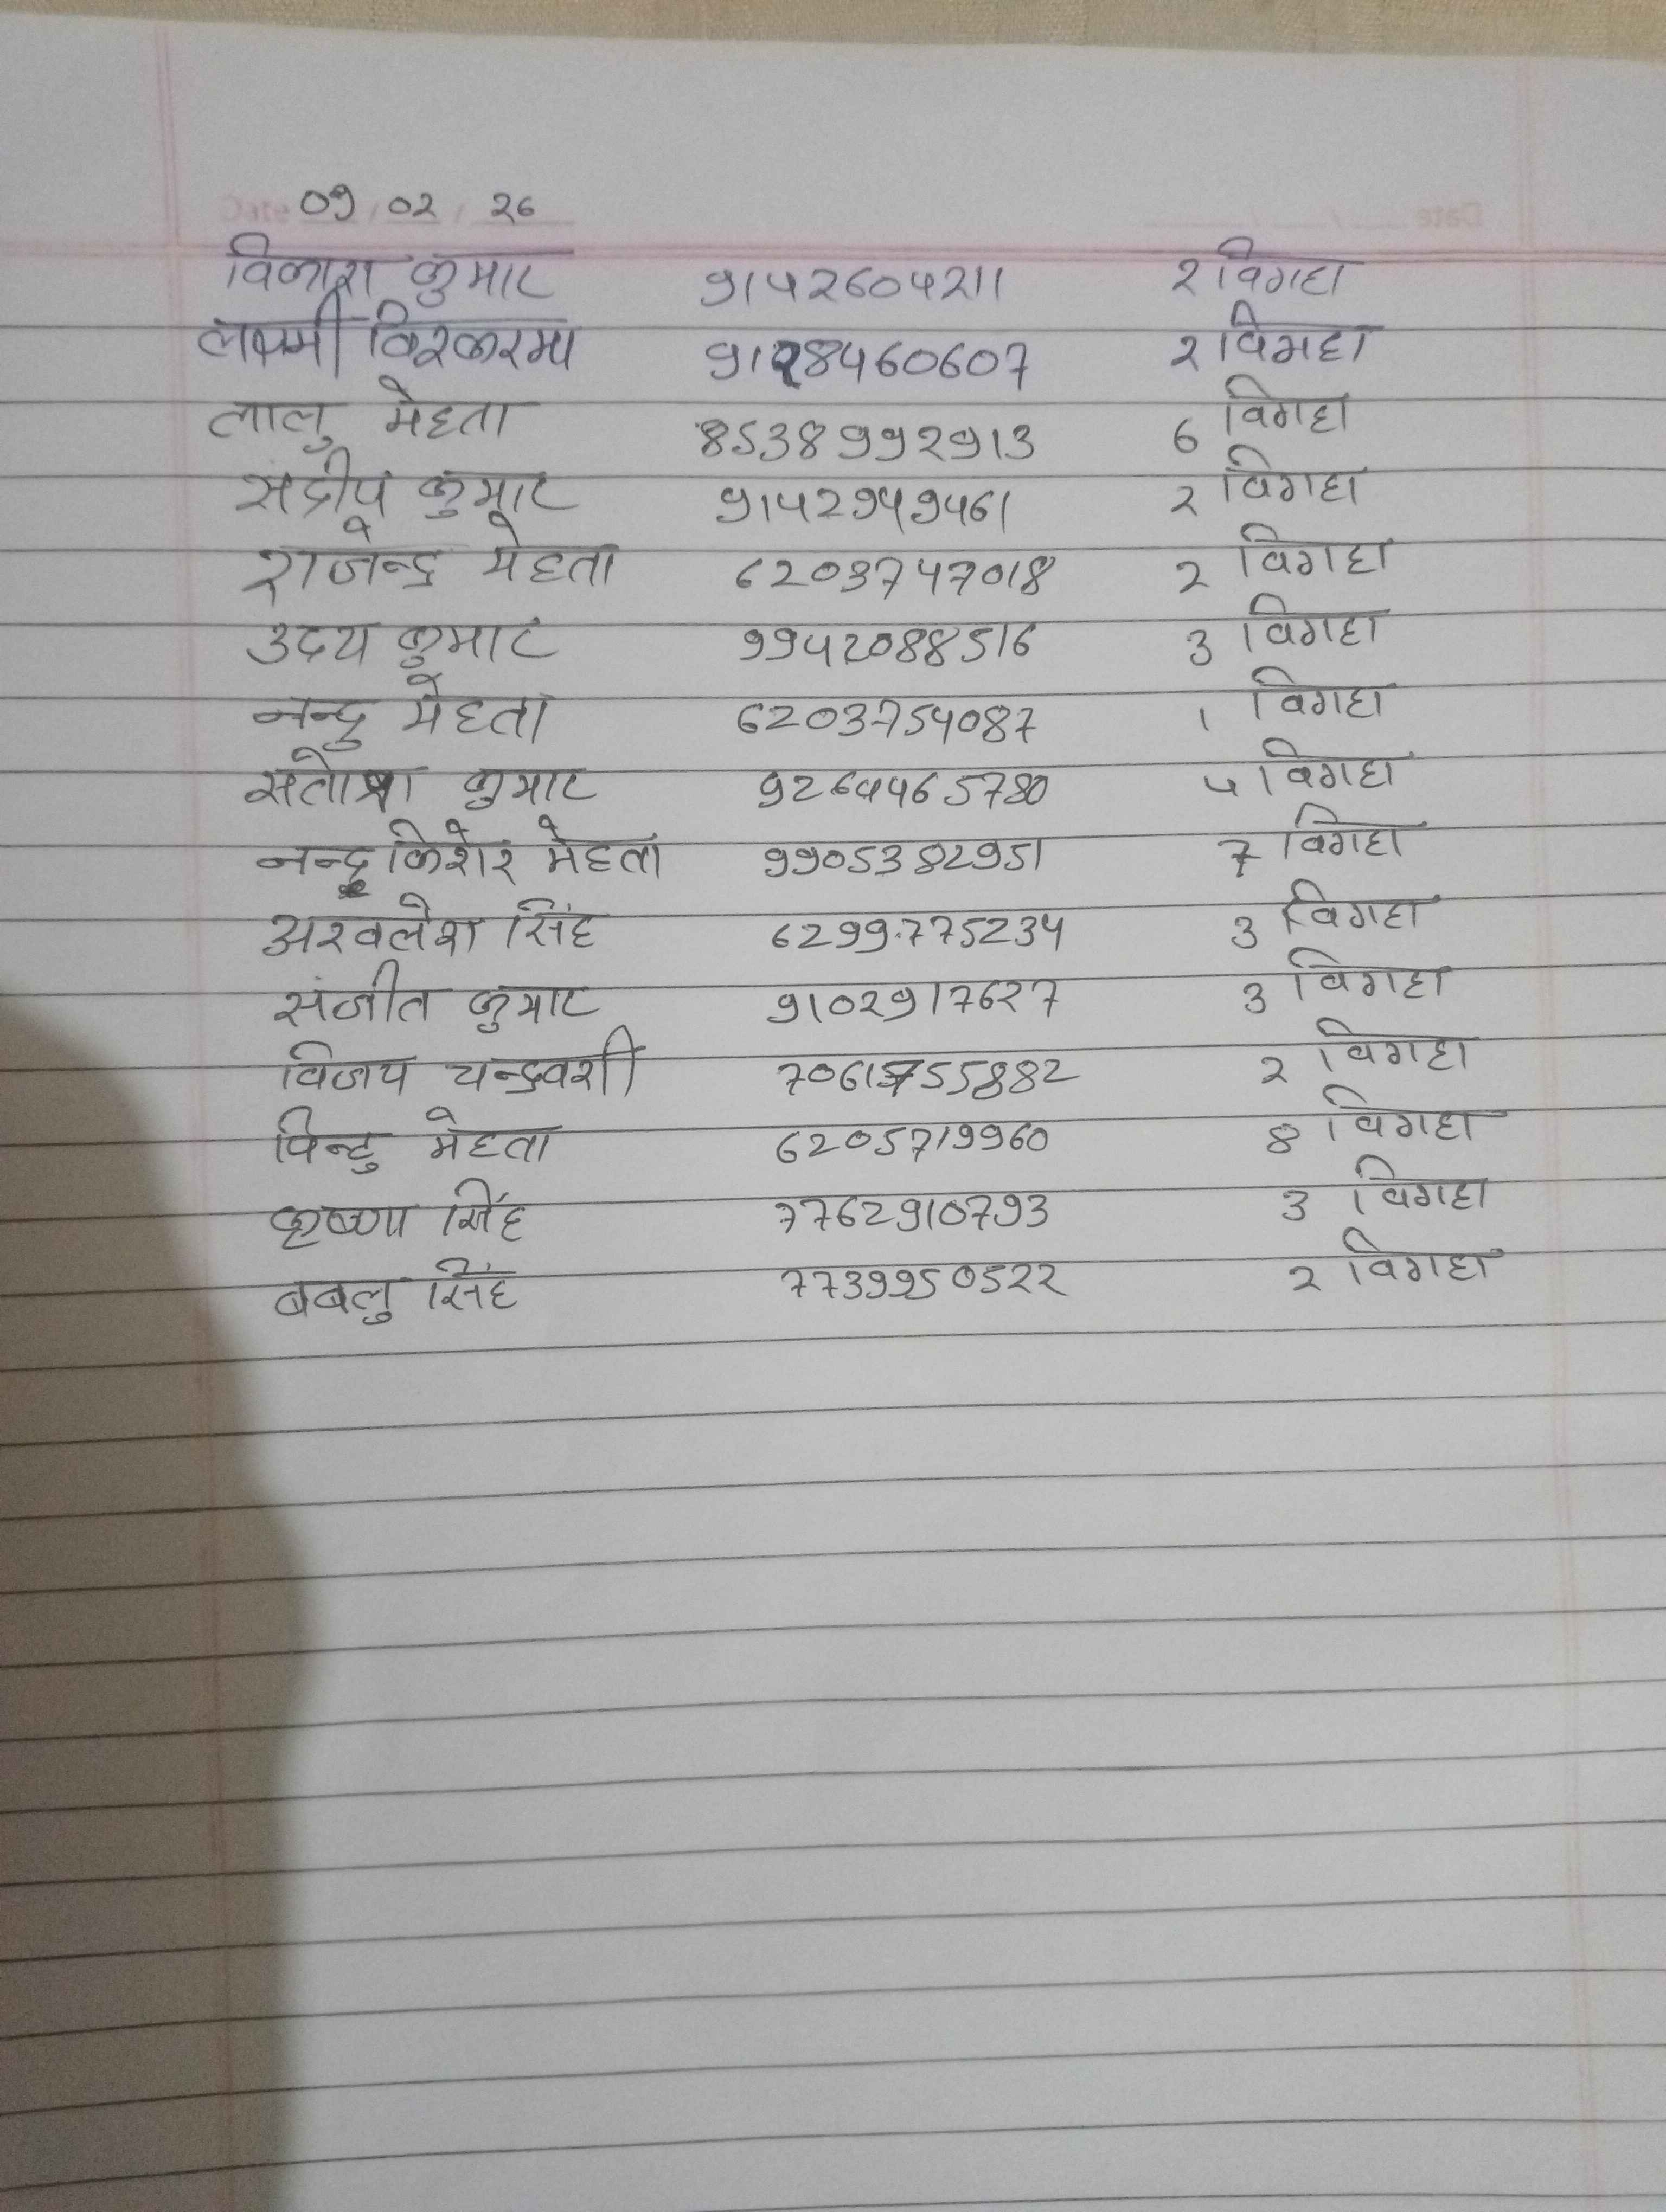 Date 09 / 02 / 26
विकाश कुमार 9142604211 2 विगहा
लक्ष्मी विश्कर्मा 9128460607 2 विगहा
लालु मेहता 8538992913 6 विगहा
संदीप कुमार 9142949461 2 विगहा
राजेन्द्र मेहता 6203747018 2 विगहा
उदय कुमार 9942088516 3 विगहा
नन्दु मेहता 6203754087 1 विगहा
कुमार 9264465780 5 विगहा
नन्दकिशेर मेहता 9905382951 7 विगहा
अखलेश सिंह 6299775234 3 विगहा
संजीत कुमार 9102917627 3 विगहा
विजय चन्द्रवशी 2 विगहा
पिन्टु मेहता 6205719960 8 विगहा
कृष्णा सिंह 7762910793 3 विगहा
बबलु सिंह 7739950522 2 विगहा